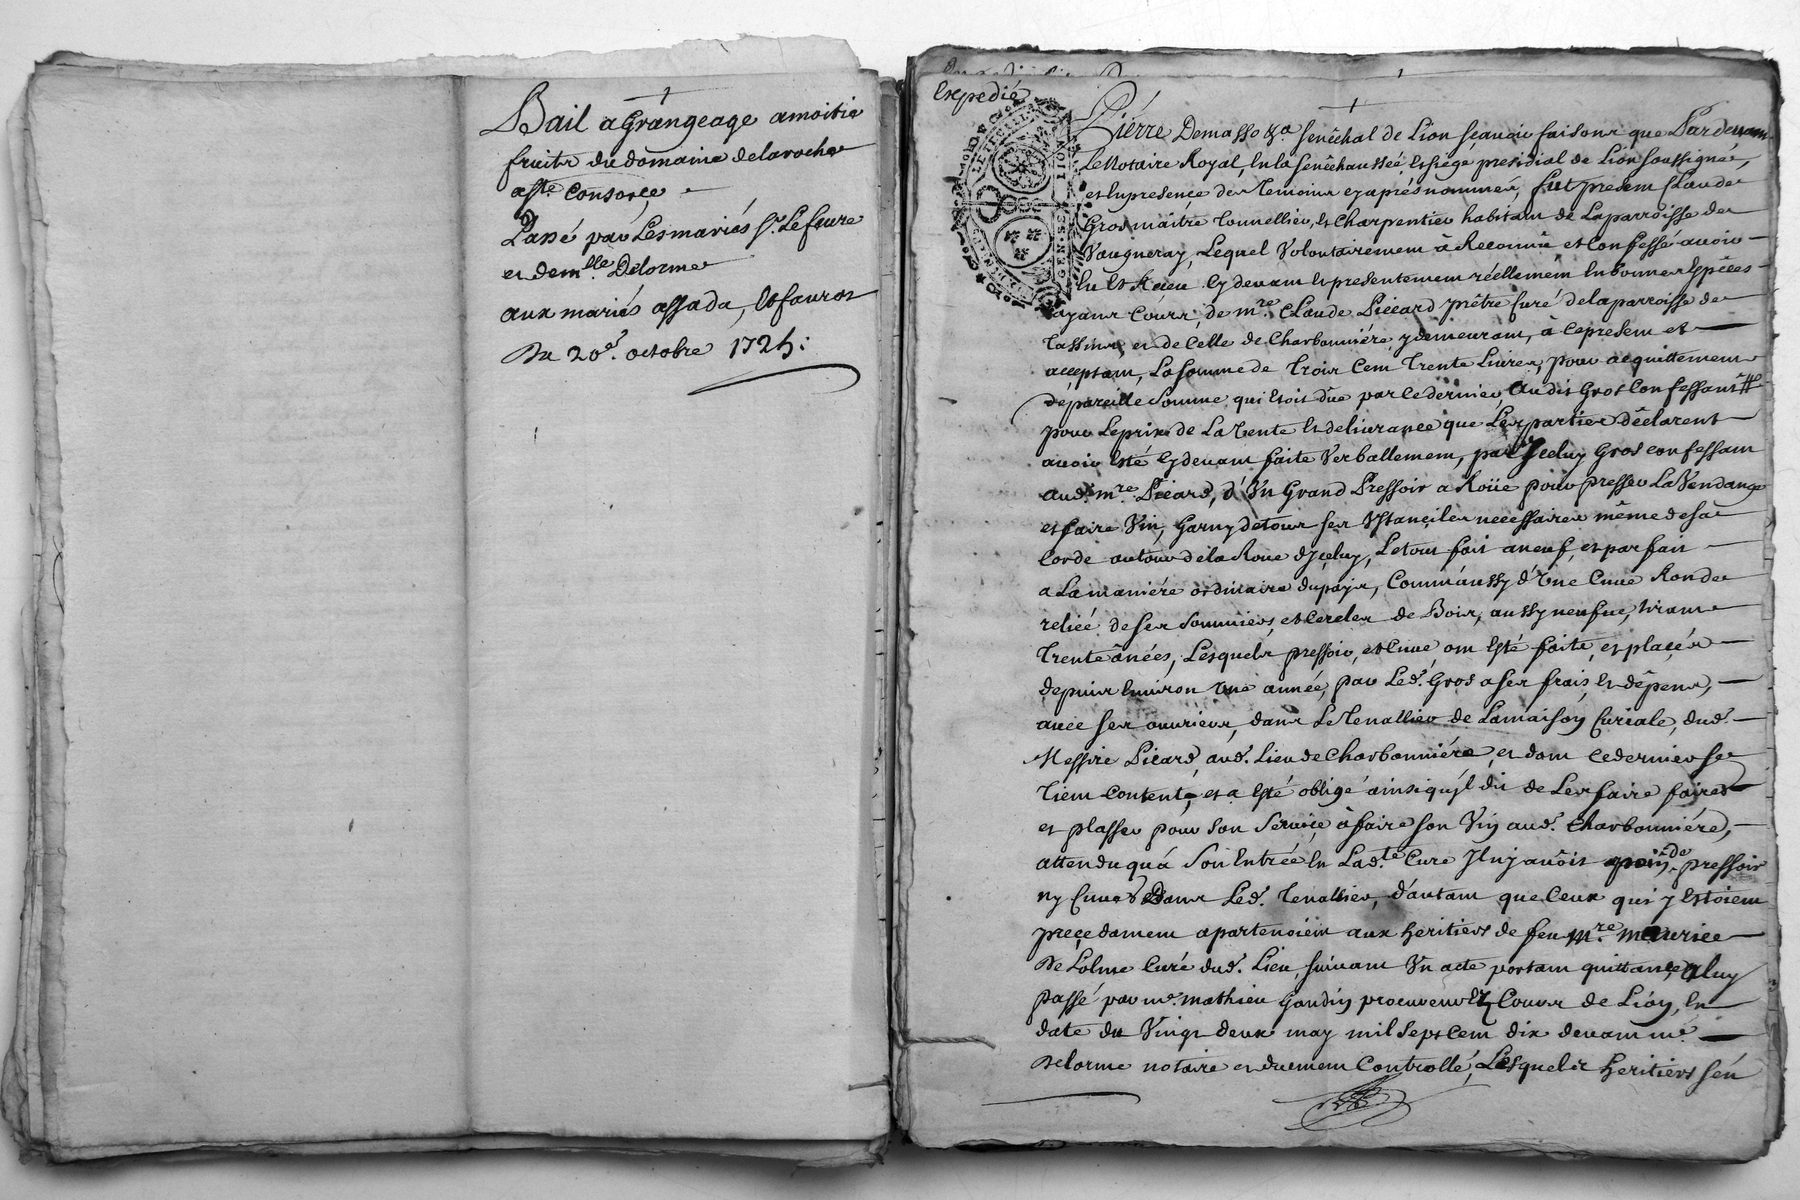 Bail a Grangeage amoitie
fruits du domaine delaroche
aste Consorce
Passé par Les mariés Sr. Lefevre
et demlle Delorme
aux mariés assada, et favrot
Du 20e. octobre 1725:
Expedié
Pierre Demasso &a senêchal de Lion sçavoir faisons que Pardevant
Le Notaire Royal, En la senêchaussée et siége presidial de Lion soussigné,
et En presence des temoins cy aprés nommés, fut present Claude
Gros maitre tonnellier, et Charpentier habitant de La parroisse de
Vaugneray, Lequel Volontairement à Reconnû et Confessé avoir
Eu et Receu Cy devant et presentement réellement En bonnes Espêces
ayans Cours, de mre. Claude Piccard prêtre Curé de la parroisse de
tassins, et de Celle de Charbonniére y demeurant, à Ce present et
acceptant, La somme de trois Cent trente Livres, pour acquittement
de pareille Somme qui Etoit dûe par Ce dernier, Au dit Gros Confessant
pour Le prix de La Vente et delivrance que Les parties dêclarent
avoir Esté Cy devant faite Verballement, par Iceluy Gros Confessant
aud. mre. Picard, d'Un Grand Pressoir a Roüe pour presser La Vendange
et faire Vin, Garny de tous ses Ustanciles necessaires même de sa
Corde autour de la Roue d'Iceluy, Le tout fait a neuf, et parfait
a La maniére ordinaire du pays, Comm'aussy d'Une Cuve Ronde
reliée de ses Sommiers, et Cercles de Bois, aussy neufve, tirant
trente ânées, Lesquels pressoir, et Cuve ont Esté faits, et placés
depuis Environ Une année, par Led. Gros a ses frais, et dêpens,
avec ses ouvriers, dans Le tenallier de La maison Curiale, dud.
Messire Picard, aud. Lieu de Charbonniére, et dont Ce dernier se
tient Content, et a Esté obligé ainsi qu'jl dit de Les faire faire
et plasser pour son Service à faire son Vin aud. Charbonniére,
attendu qu'á Son Entrée En Lad.te Cure Jl n'y avoit point de pressoir
ny Cuves Dans Led. tenallier, d'autant que Ceux qui y Estoient
preçedament apartenoient aux heritiers de feu mre. maurice
De Lolme Curé dud. Lieu, suivant Un acte portant quittance, a luy
Passé par me. mathieu Gaudin procureur Ez Cours de Lion, En
date du Vingt deux may mil sept Cent dix devant me.
Delorme notaire et duement Controllé, Lesquels heritiers s'en